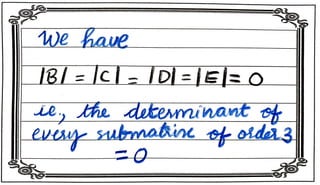 We have
|B| = |C| = |D| = |E| = 0
ie, the determinant of
every submatrix of order 3
= 0